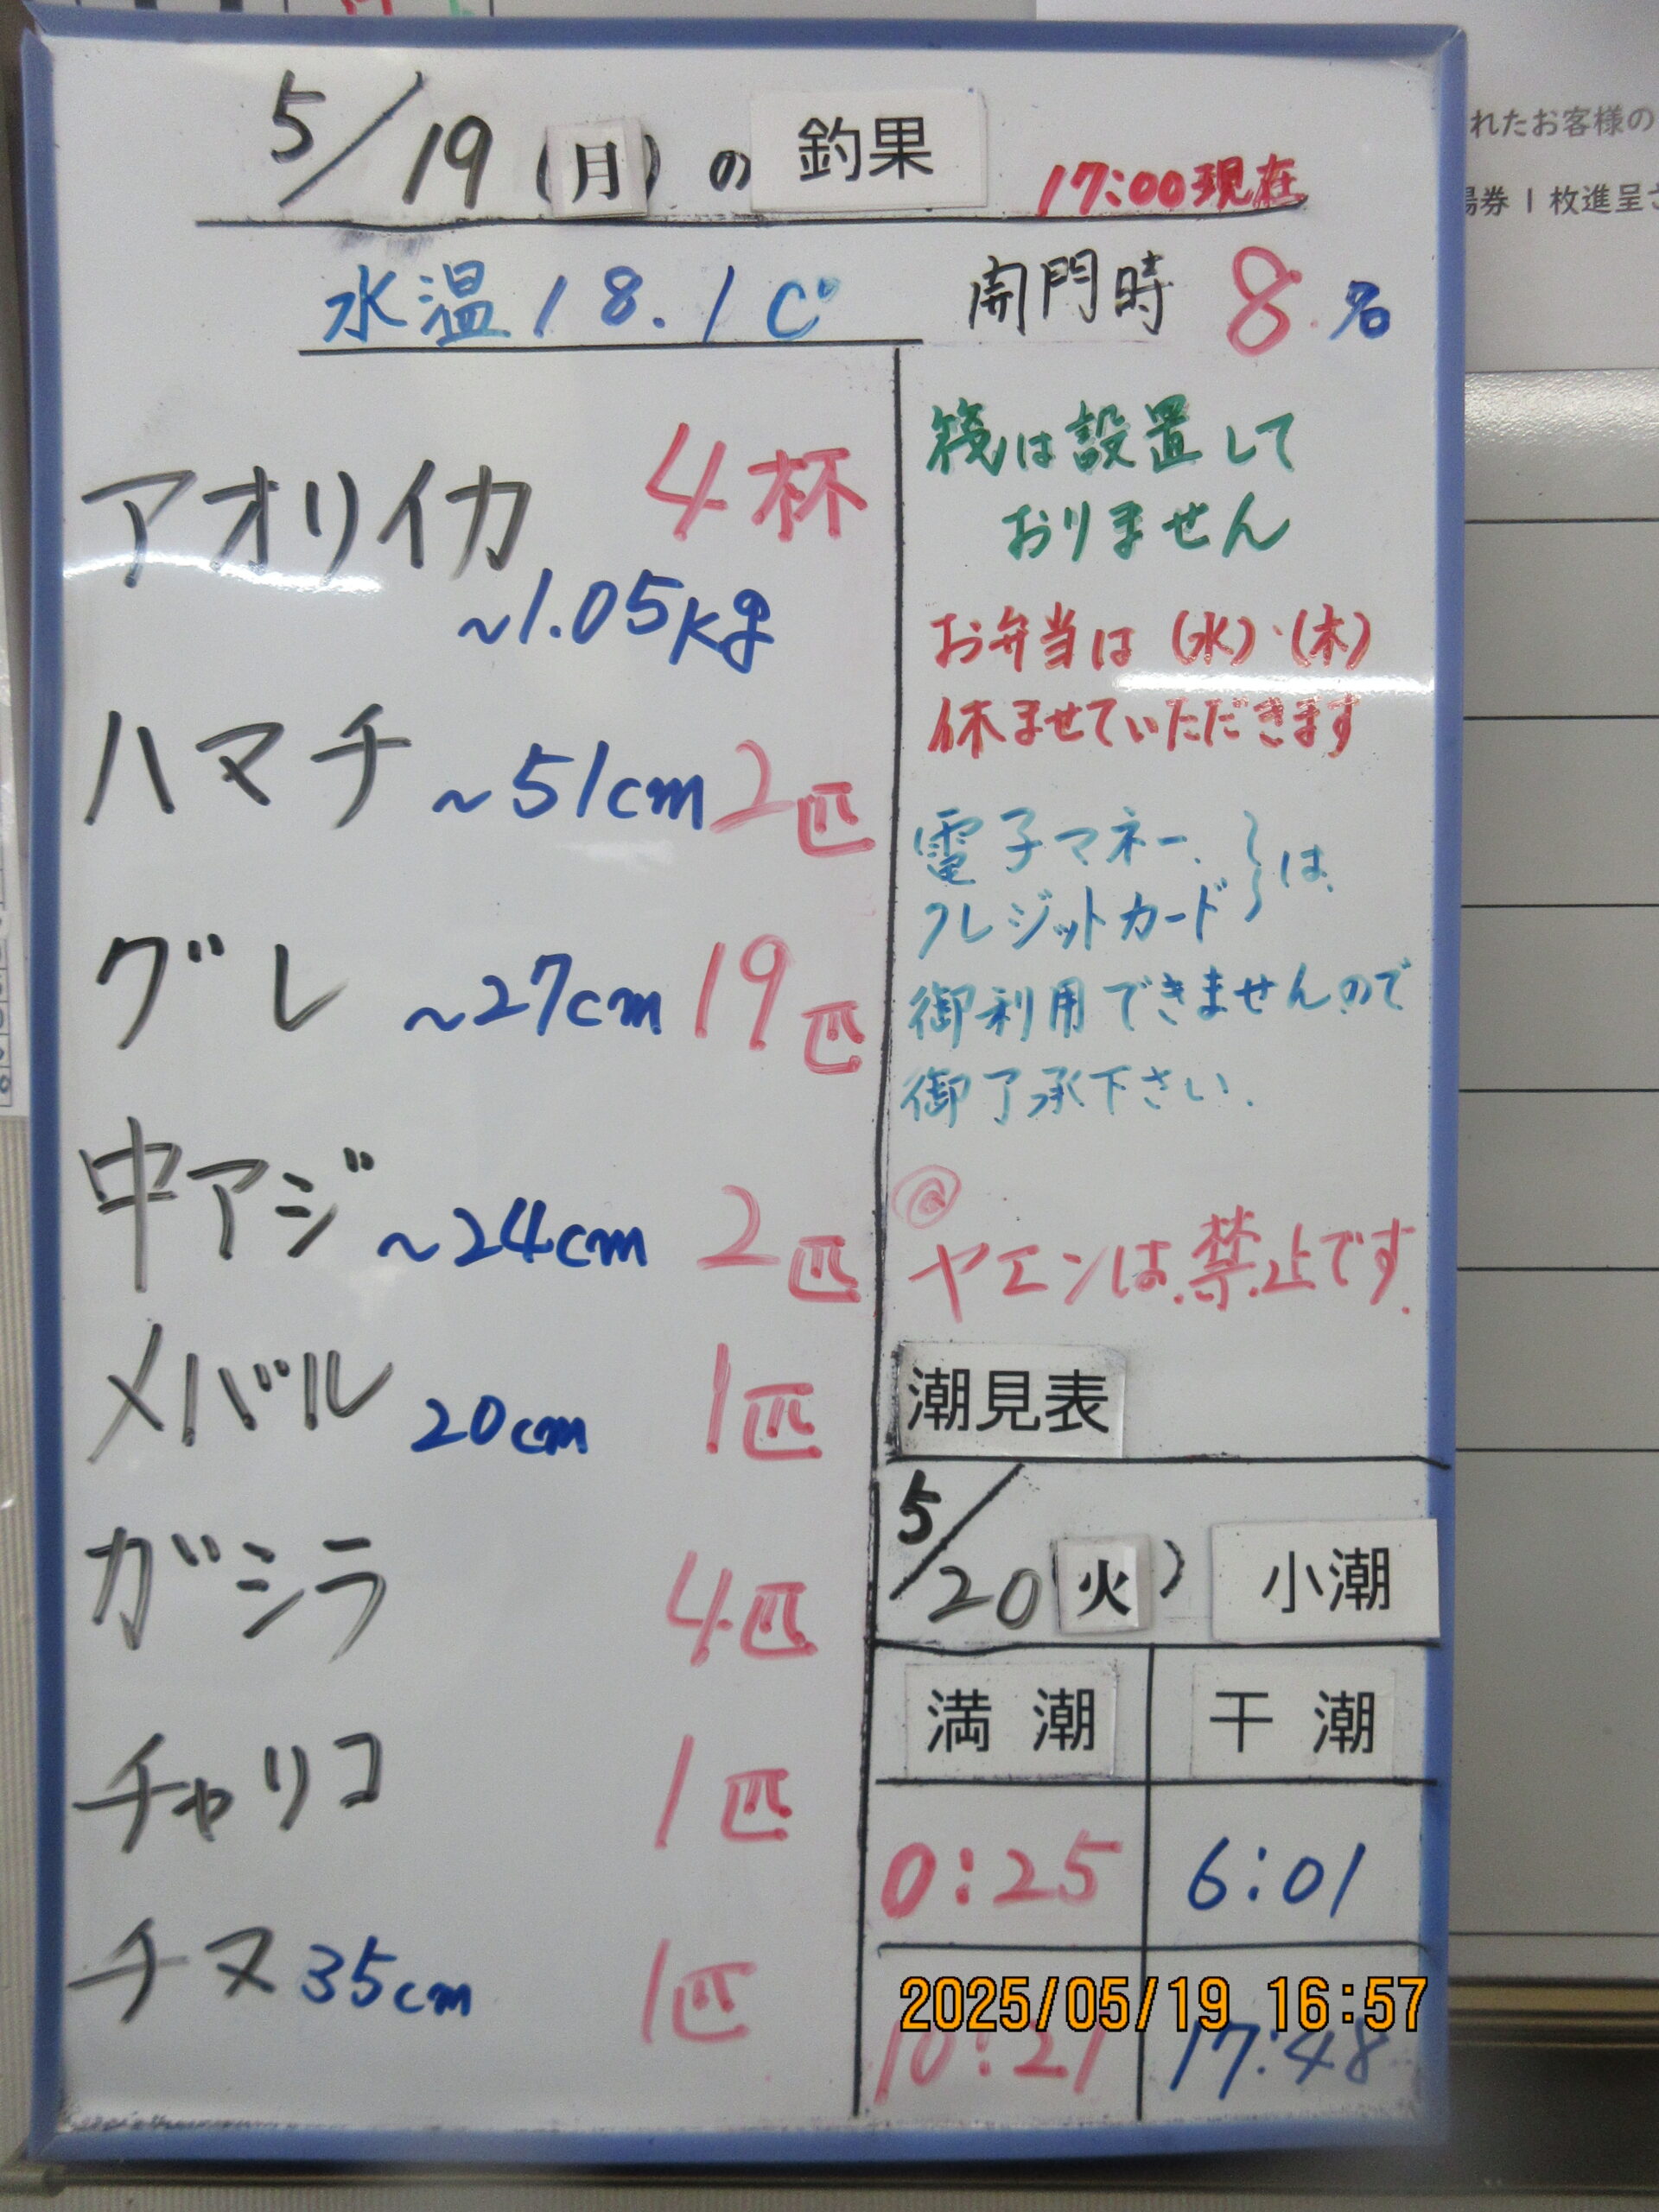 5/19(月)の 釣果 17:00現在
水温18.1C° 開門時 8名
アオリイカ 4杯
~1.05kg
ハマチ ~51cm 2匹
グレ ~27cm 19匹
中アジ ~24cm 2匹
メバル 20cm 1匹
ガシラ 4匹
チャリコ 1匹
チヌ 35cm 1匹
筏は設置して
おりません
お弁当は(水)・(木)
休ませていただきます
電子マネー、
クレジットカード}は、
御利用できませんので
御了承下さい.
◎
ヤエンは禁止です.
潮見表
5/20 火) 小潮
満潮 干潮
0:25 6:01
10:21 17:48
2025/05/19 16:57
れたお客様の
券1枚進呈